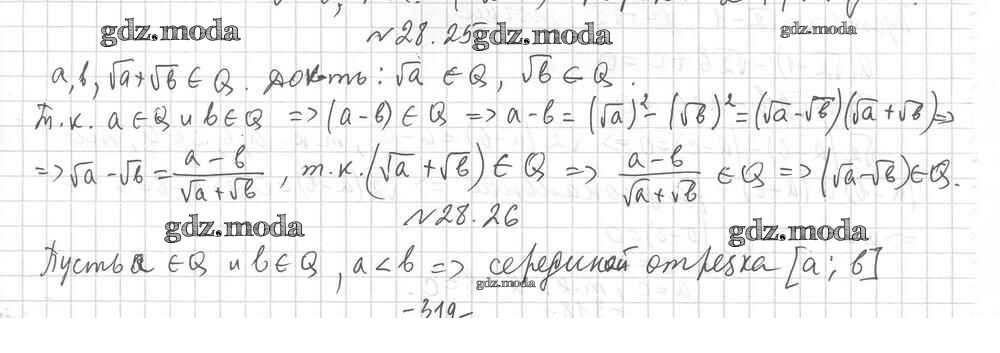 gdz.moda №28.25 gdz.moda gdz.moda
a, b, √a+√b ∈ Q. Док-ть: √a ∈ Q, √b ∈ Q.
Т.к. a ∈ Q и b ∈ Q => (a-b) ∈ Q => a-b = (√a)² - (√b)² = (√a-√b)(√a+√b) =>
=> √a-√b = (a-b)/(√a+√b), т.к. (√a+√b) ∈ Q => (a-b)/(√a+√b) ∈ Q => (√a-√b) ∈ Q.
gdz.moda №28.26 gdz.moda
Пусть a ∈ Q и b ∈ Q, a < b => серединой отрезка [a; b]
gdz.moda
-319-